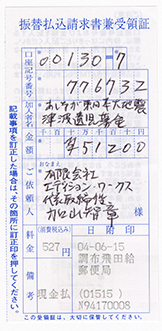 振替払込請求書兼受領証
口座記号番号
00130-7
776732
加入者名
あしなが東日本大地震
津波遺児募金
金額
千百十万千百十円
¥51200
おなまえ
ご依頼人
有限会社
エディション・ワークス
代表取締役
加口山智章
料金
(消費税込み)
527円
日附印
04-06-15
調布飛田給
郵便局
備考
現金払
(01515)
N94170008
記載事項を訂正した場合は、その箇所に訂正印を押してください。
この受領証は、大切に保管してください。